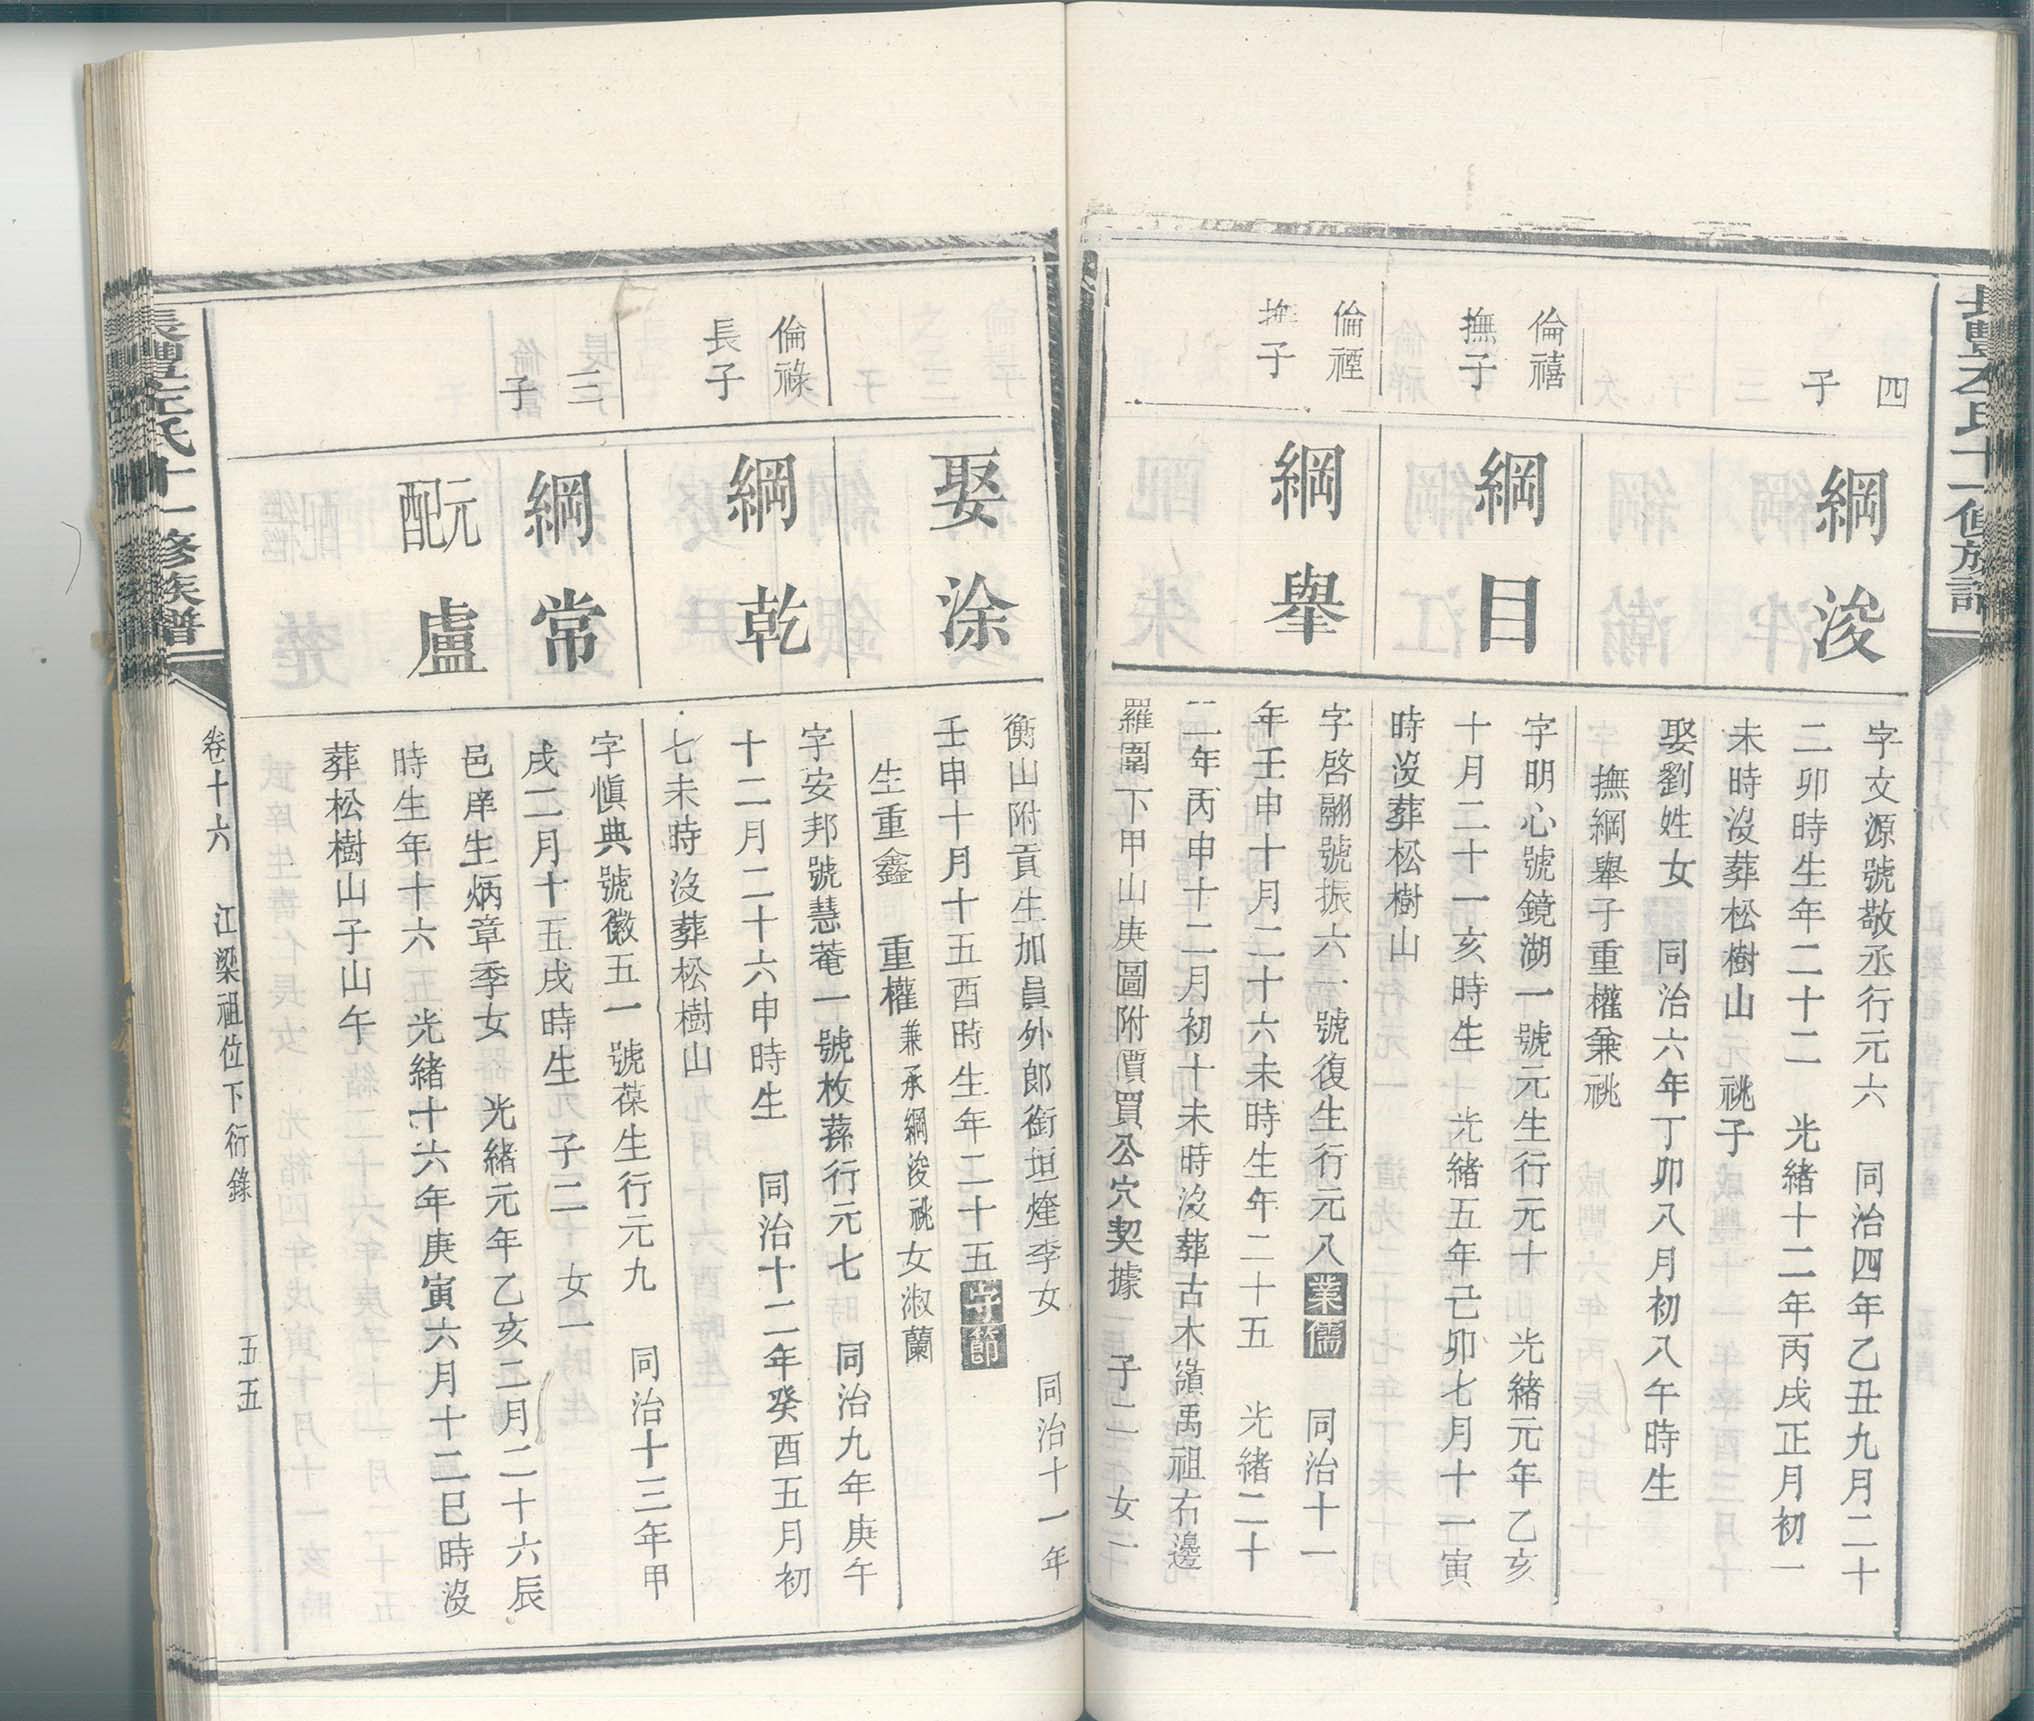 四
子
綱浚
字文源號敬丞行元六　同治四年乙丑九月二十
二卯時生年二十二　光緒十二年丙戌正月初一
未時沒葬松樹山　祧子
娶劉姓女　同治六年丁卯八月初八午時生
撫綱舉子重權兼祧
倫禧
撫子
綱目
字明心號鏡湖一號元生行元十　光緒元年乙亥
十月二十一亥時生　光緒五年己卯七月十一寅
時沒葬松樹山
倫禋
撫子
綱舉
字啓翮號振六一號復生行元八業儒　同治十一
年壬申十月二十六未時生年二十五　光緒二十
二年丙申十二月初十未時沒葬古木嶺禹祖右邊
羅圍下甲山庚圖附價買公穴契據　子二　女一
娶涂
衡山附貢生加員外郎銜垣煃季女　同治十一年
壬申十月十五酉時生年二十五守節
生重鑫　重權兼承綱浚祧女淑蘭
倫祿
長子
綱乾
字安邦號慧菴一號枚蓀行元七　同治九年庚午
十二月二十六申時生　同治十二年癸酉五月初
七未時沒葬松樹山
二
子
綱常
字愼典號徽五一號葆生行元九　同治十三年甲
戌二月十五戌時生　子二　女一
元配盧
邑庠生炳章季女　光緒元年乙亥二月二十六辰
時生年十六　光緒十六年庚寅六月十二巳時沒
葬松樹山子山午
氏十一修族譜
卷十六　江梁祖位下衍錄　五五